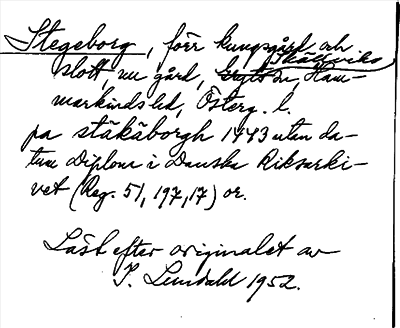 Stegeborg, förr kungsgård och
Skällviks
slott, nu gård, sn, Ham-
markinds hd, Österg. l.
pa stäkäborgh 1443 utan da-
tum Diplom i Danska Riksarki-
vet (Reg. 51, 197, 17) or.
Läst efter originalet av
I. Lundahl 1952.